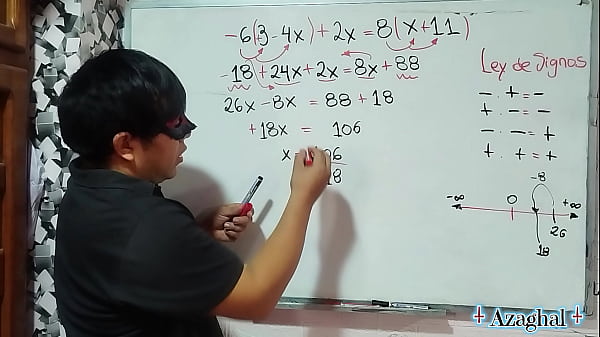 -6(3-4x)+2x=8(x+11)
-18+24x+2x=8x+88
26x-8x = 88+18
+18x = 106
x 06
18
Ley de Signos
- . + = -
+ . - = -
- . - = +
+ . + = +
-8
-∞ 0 +∞
26
18
+ Azaghal +